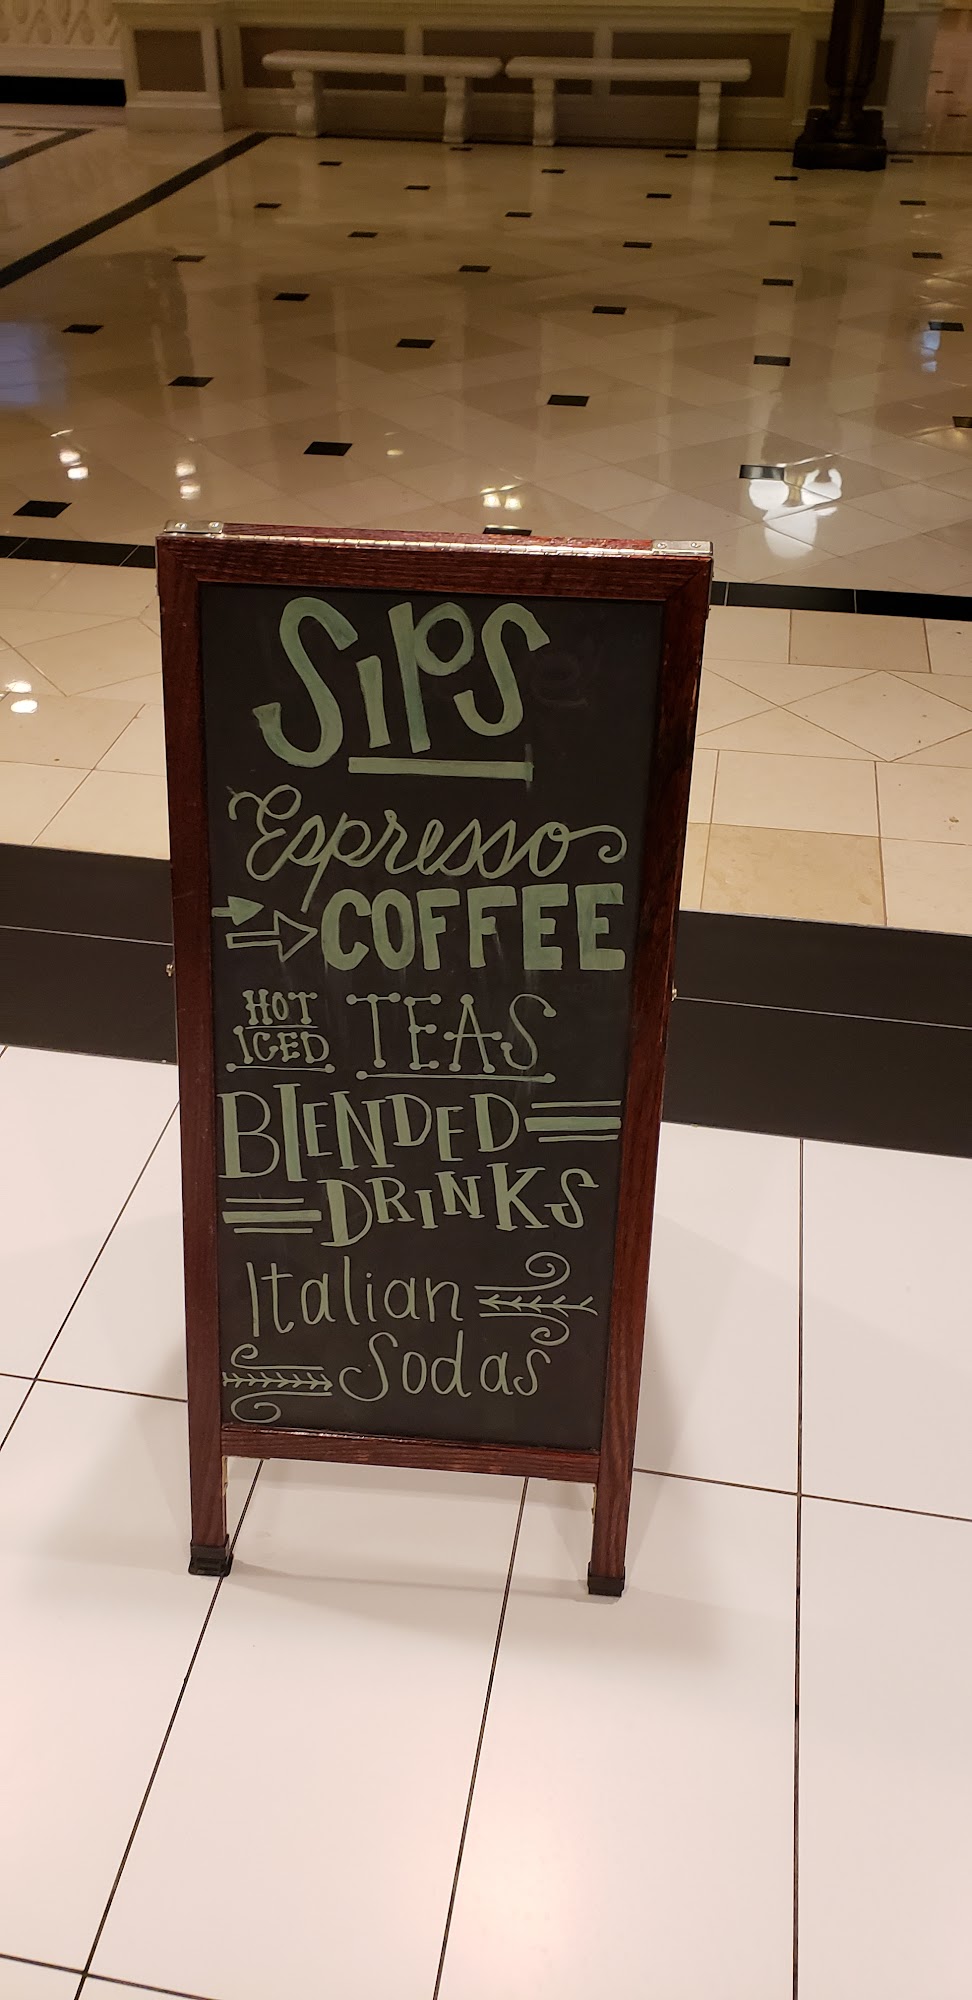 SiPS
Espresso
COFFEE
HOT ICED TEAS
BLENDED
DRINKS
Italian
Sodas